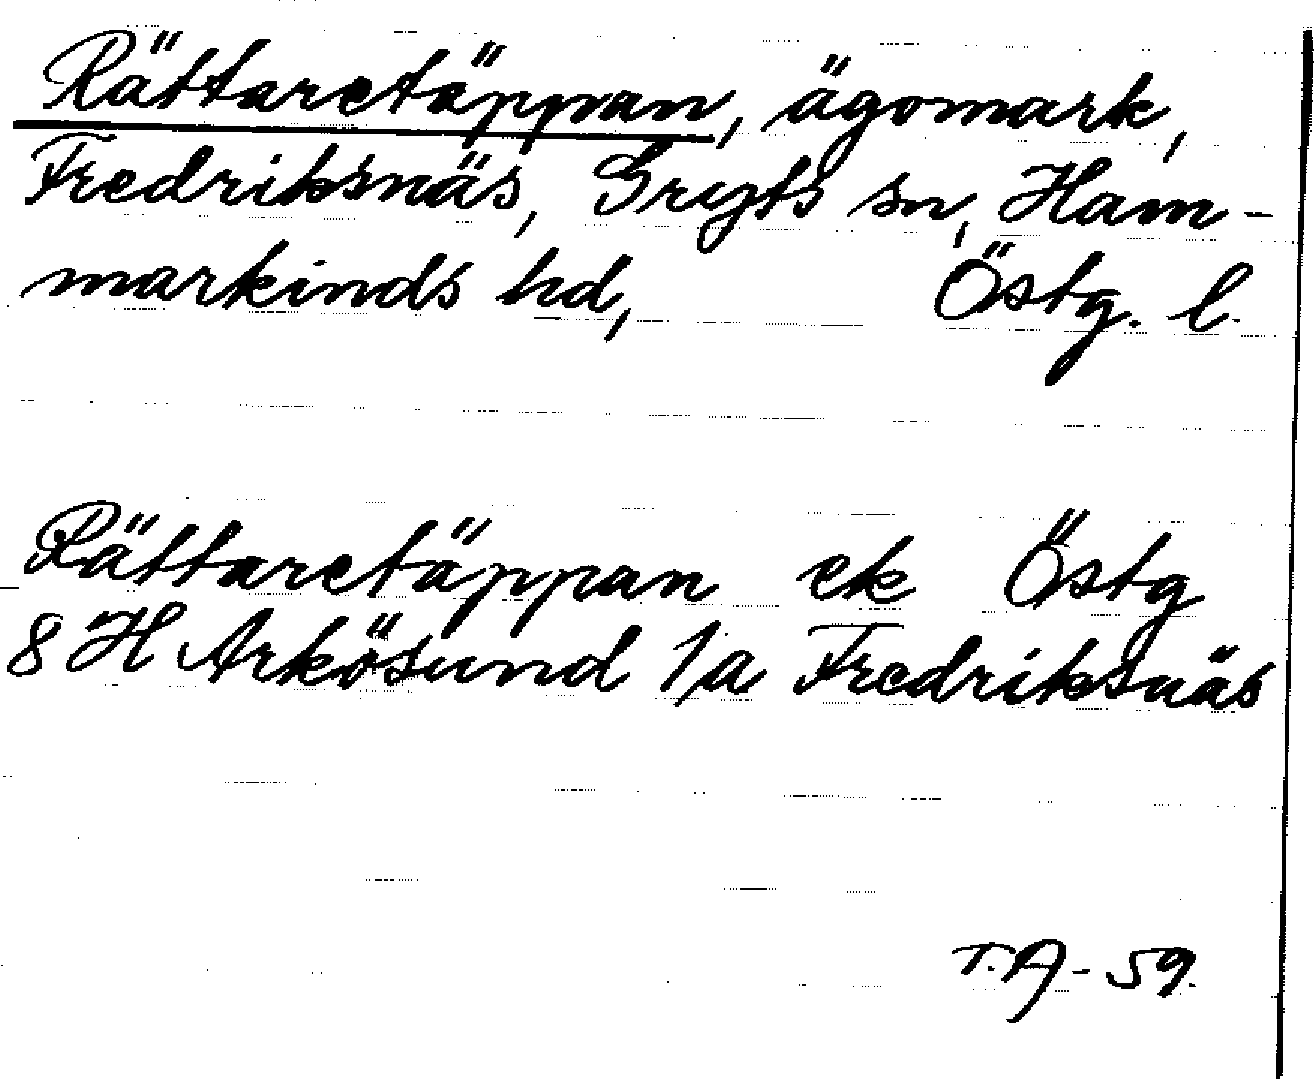 Rättaretäppan, ägomark,
Fredriksnäs, Gryts sn, Ham-
markinds hd, Östg. l.
Rättaretäppan ek Östg
8 H Arkösund 1a Fredriksnäs
T.A - 59.